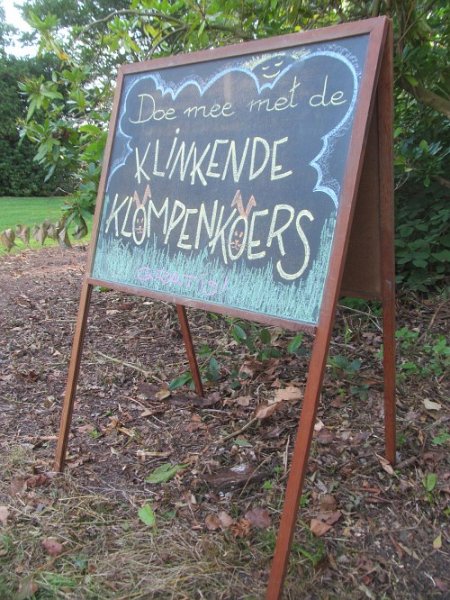 Doe mee met de
KLINKENDE
KLOMPENKOERS
GRATIS!